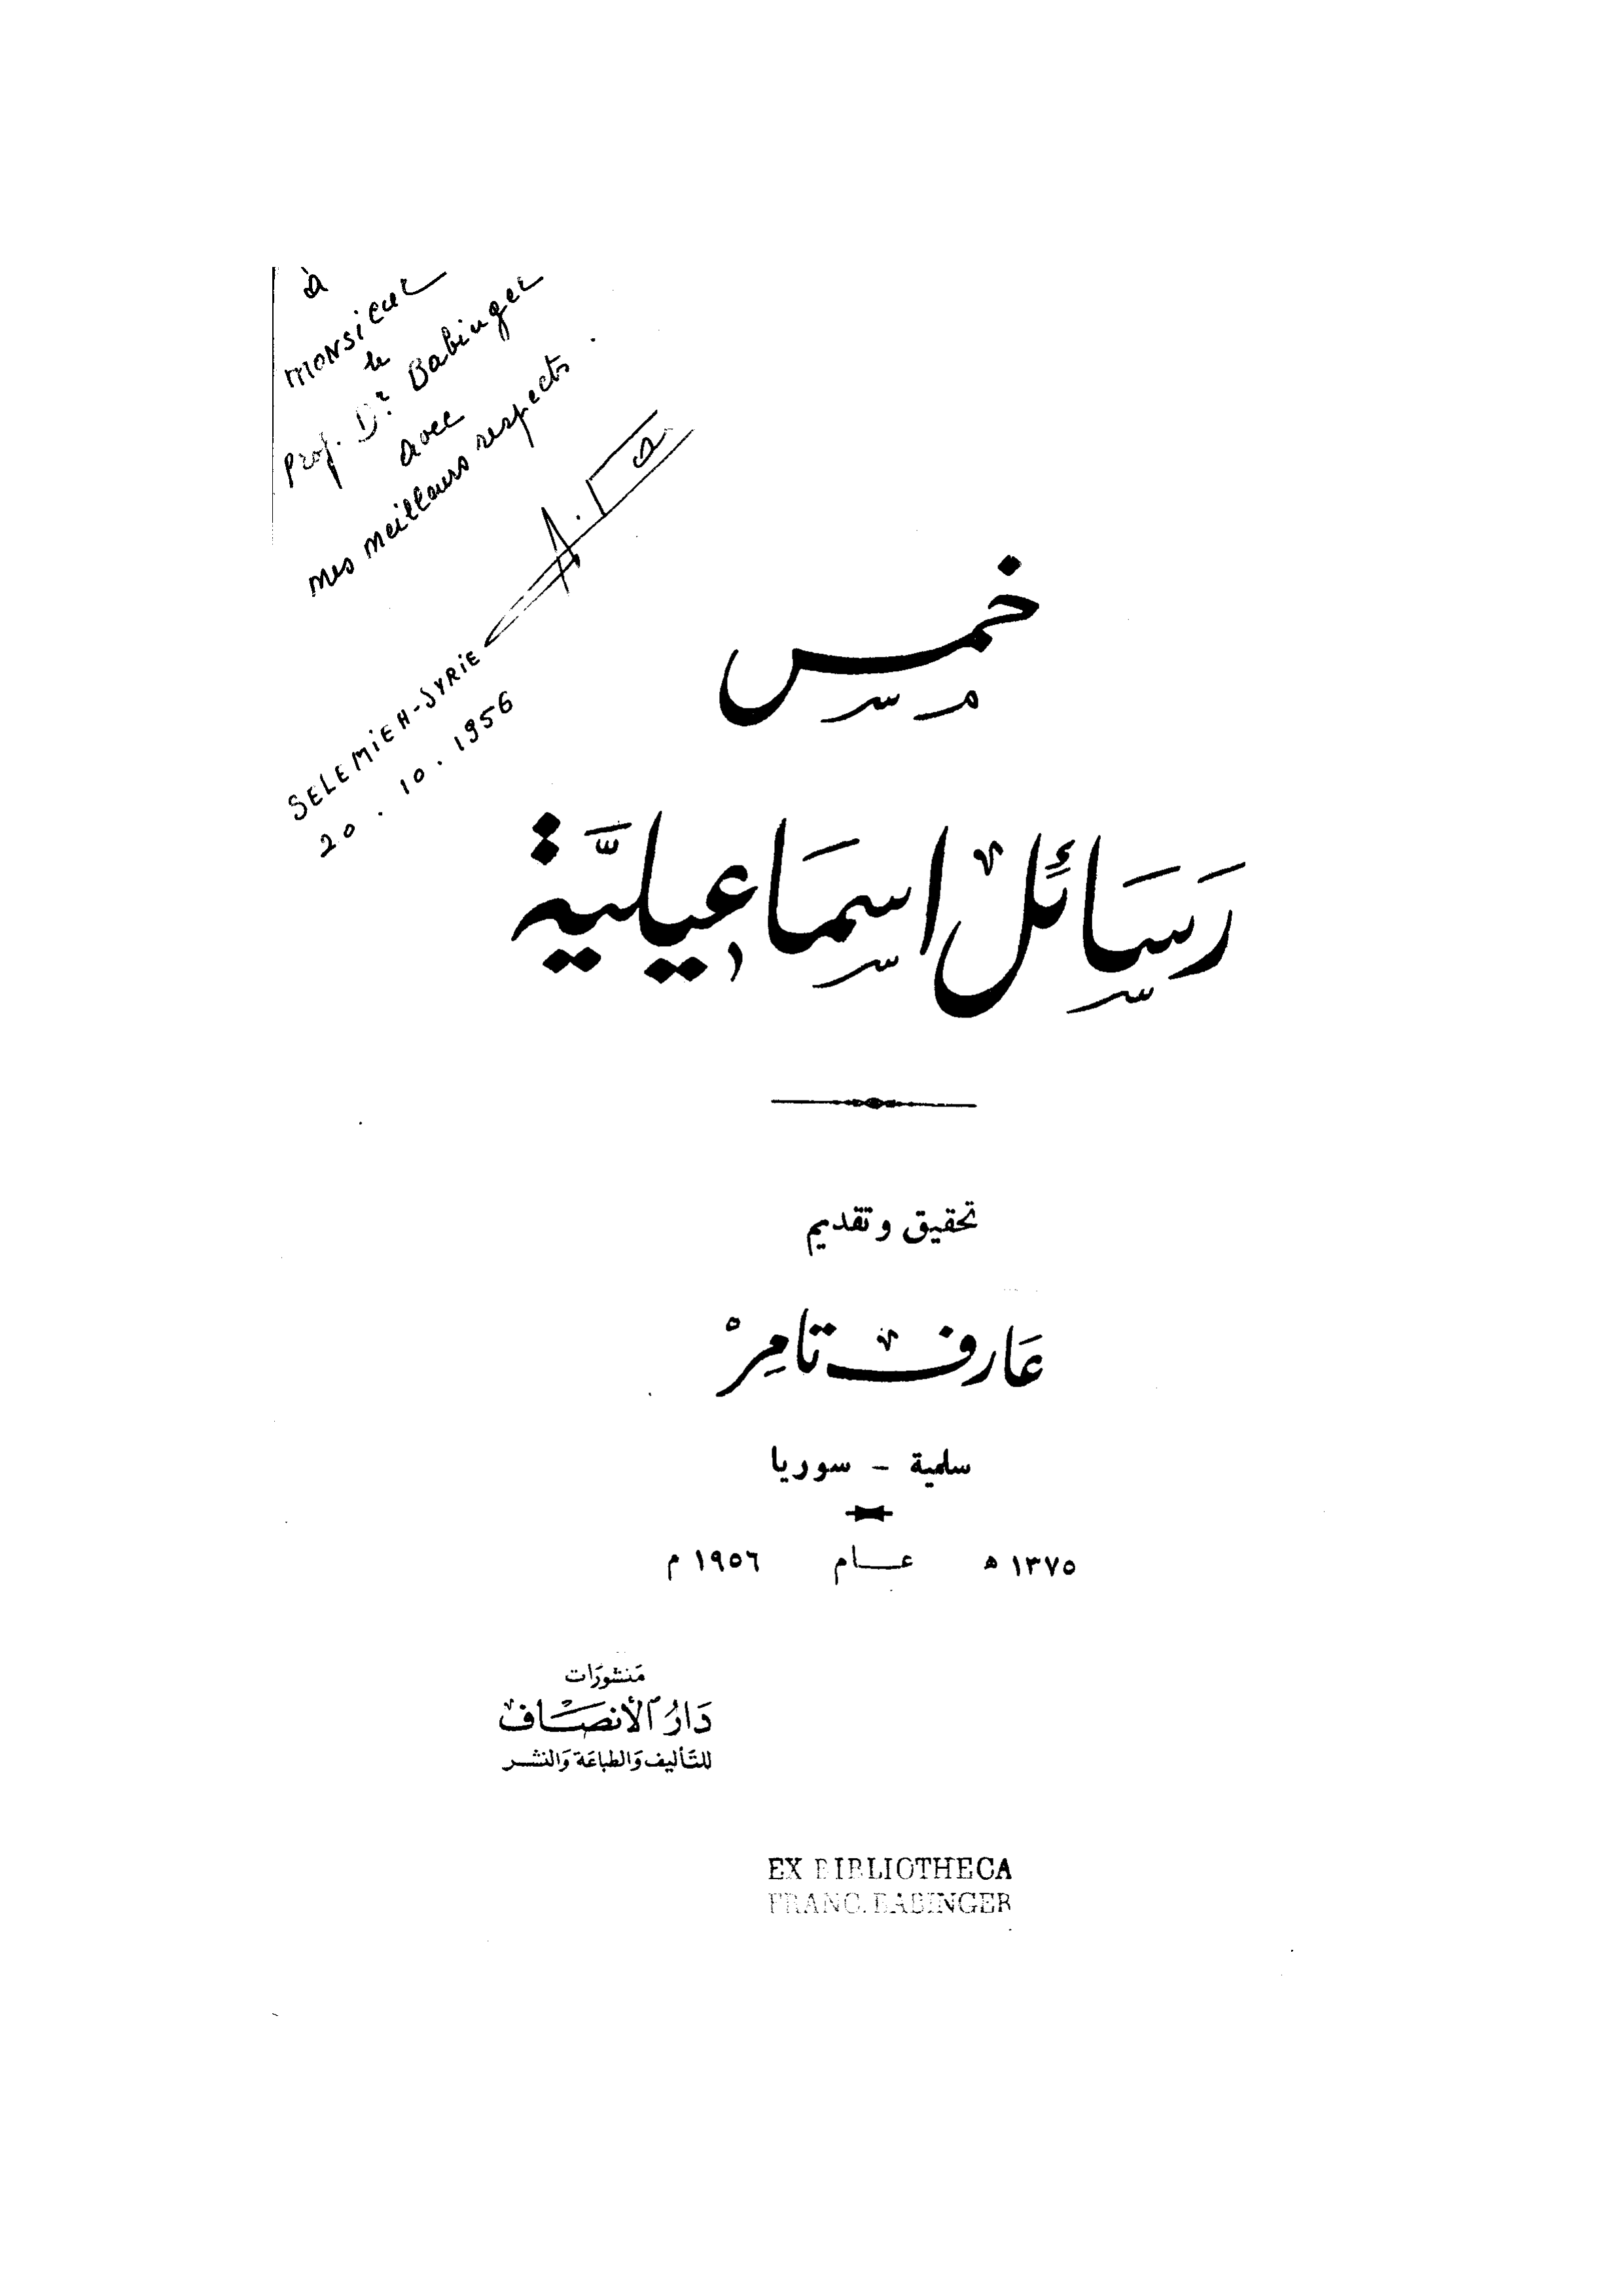 à
Monsieur
le
Prof. Dr. Babinger
avec
mes meilleurs respects.
SELEMIEH-SYRIE
20.10.1956
خمس
رَسَائل اسِمَاعِيليَّة
تحقيق وتقديم
عَارف تامِرْ
سلمية - سوريا
١٣٧٥ هـ عـــام ١٩٥٦ م
مَنشورَات
دَارُ الأنصَاف
للتَأليف وَالطباعَة وَالنشر
EX BIBLIOTHECA
FRANC. BABINGER